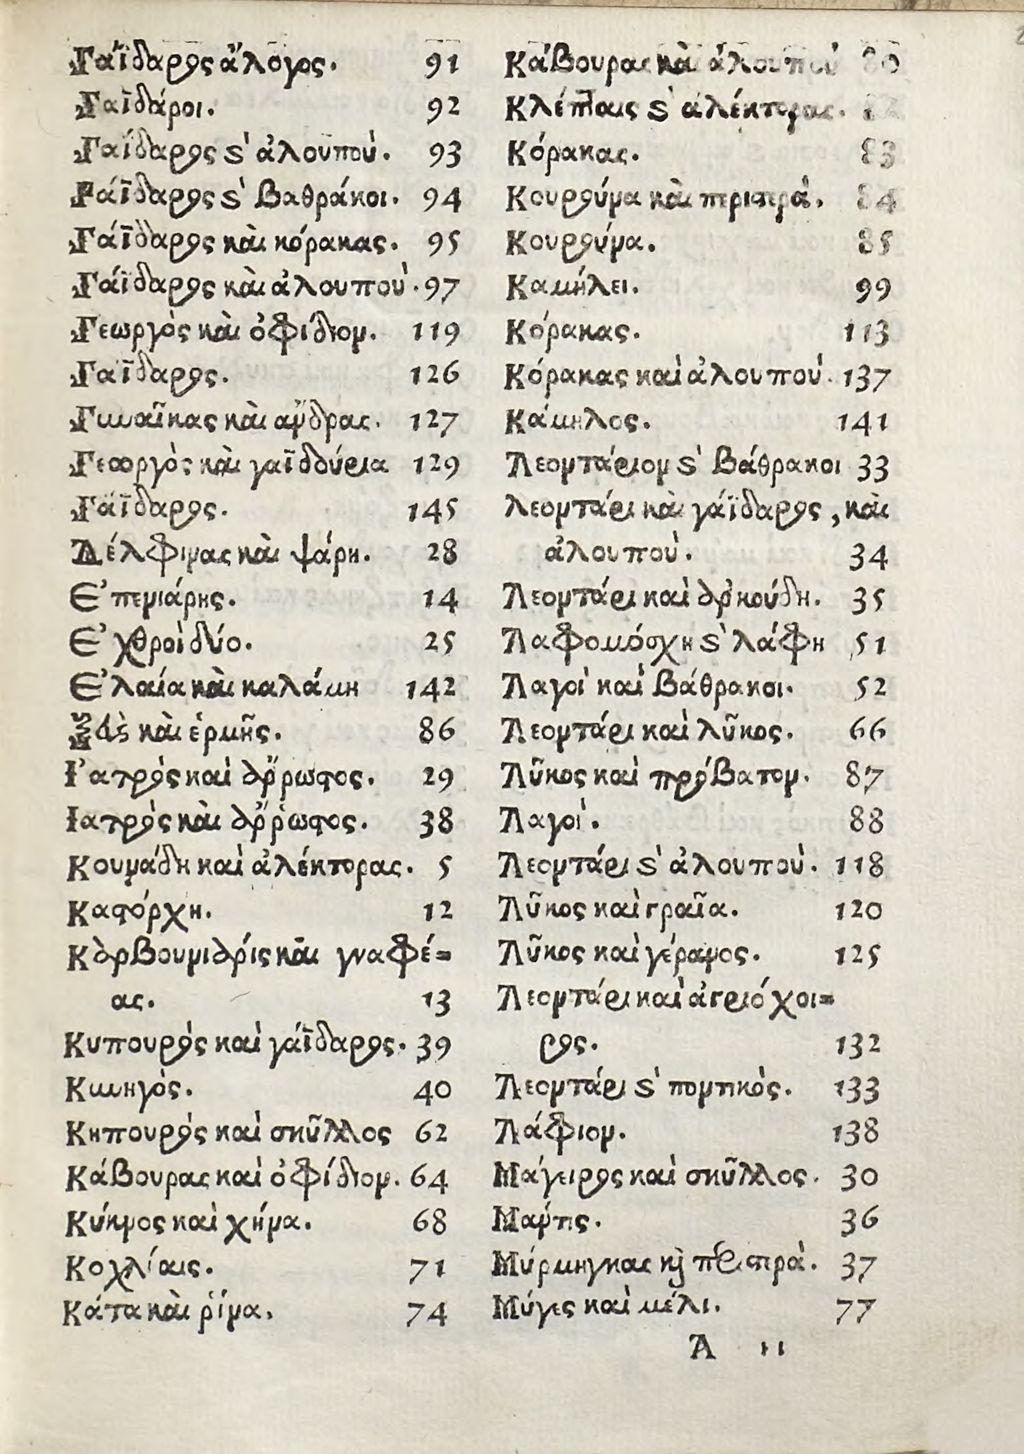 Γαΐδαρος ἄλογος. 91
Γαϊδάροι. 92
Γαίδαρος ϛ ἀλουποὺ. 93
Γάϊδαρος ϛ βαθράκοι. 94
Γάϊδαρος καὶ κόρακας. 95
Γάϊδαρος καὶ ἀλουποὺ. 97
Γεωργὸς καὶ ὀφίδιον. 119
Γαΐδαρος. 126
Γυναῖκας καὶ ἄνδρας. 127
Γεωργὸς καὶ γαϊδούρια 129
Γάϊδαρος. 145
Δέλφινας καὶ ψάρη. 28
Ἐπενιάρης. 14
Ἐχθροὶ δύο. 25
Ἐλαία καὶ καλάμη 142
Ζεὺς καὶ ἑρμῆς. 86
Ἰατρὸς καὶ ἄρρωστος. 29
Ιατρὸς καὶ ἄρρωστος. 38
Κουνάδη καὶ ἀλέκτορας. 5
Καστόρχη. 12
Καρβουνιάρις καὶ γναφέ=
ας. 13
Κυπουρὸς καὶ γάϊδαρος. 39
Κυνηγὸς. 40
Κηπουρὸς καὶ σκῦλλος 62
Κάβουρας καὶ ὀφίδιον. 64
Κύκνος καὶ χήνα. 68
Κοχλίαις. 71
Κάτα καὶ ῥίνα. 74
Κάβουρας καὶ ἀλουποὺ 80
Κλέπταις ϛ ἀλέκτορας.
Κόρακας. 83
Κουρούνα καὶ περιστερά. 84
Κουρούνα. 85
Καμήλει. 99
Κόρακας. 113
Κόρακας καὶ ἀλουποὺ. 137
Κάμηλος. 141
Λεοντάριον ϛ βάθρακοι 33
λεοντάρι καὶ γάϊδαρος, καὶ
ἀλουποὺ. 34
Λεοντάρι καὶ ἀρκούδη. 35
Λαφομόσχη ϛ λάφη 51
Λαγοὶ καὶ βάθρακοι. 52
Λεοντάρι καὶ λῦκος. 66
Λῦκος καὶ πρόβατον. 87
Λαγοὶ. 88
Λεοντάρι ϛ ἀλουποὺ. 118
Λῦκος καὶ γραῖα. 120
Λῦκος καὶ γέρανος. 125
Λεοντάρι καὶ ἀγριόχοι=
ρος. 132
Λεοντάρι ϛ ποντικὸς. 133
Λάφιον. 138
Μάγειρος καὶ σκῦλλος. 30
Μάντις. 36
Μύρμηγκας καὶ περιστερὰ. 37
Μύγες καὶ μέλι. 77
Α ii